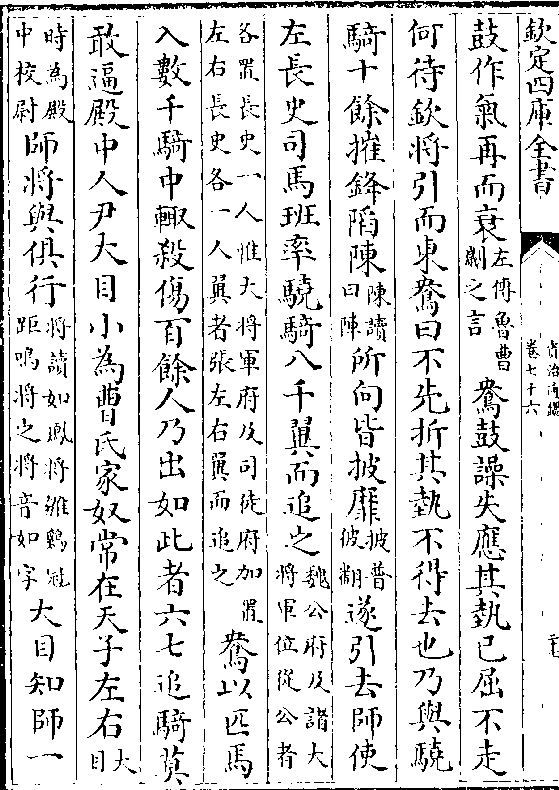 欽定四庫全書
資治通鑑
卷七十六
鼓作氣再而衰左傳魯曹劌之言鴦鼓譟失應其埶已屈不走
何待欽將引而東鴦曰不先折其埶不得去也乃與驍
騎十餘摧鋒陷陳陳讀曰陣所向皆披靡披普彼翻遂引去師使
左長史司馬班率驍騎八千翼而追之魏公府及諸大將軍位從公者
各置長史一人惟大將軍府及司徒府加置左右長史各一人翼者張左右翼而追之鴦以匹馬
入數千騎中輒殺傷百餘人乃出如此者六七追騎莫
敢逼殿中人尹大目小為曹氏家奴常在天子左右大目
時為殿中校尉師將與俱行將讀如鳳將雛鷄冠距鳴將之將音如字大目知師一